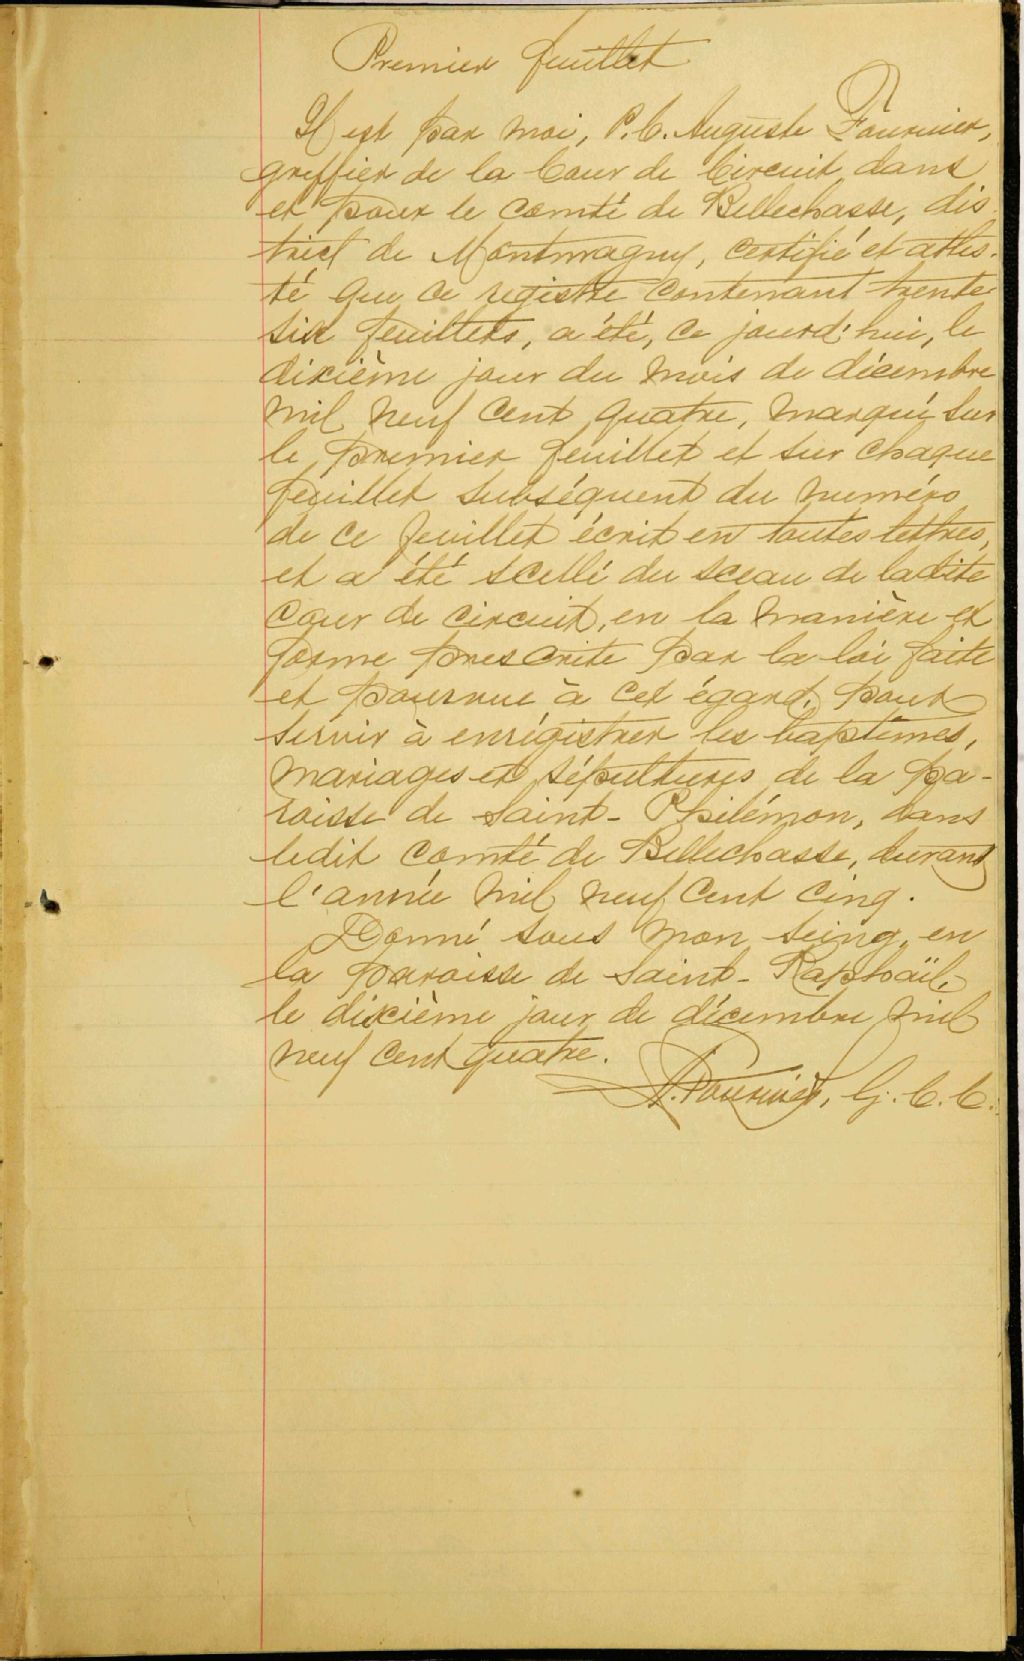 Premier feuillet
Il est par moi, P. C. Auguste Fournier,
greffier de la Cour de Circuit dans
et pour le comté de Bellechasse, dis-
trict de Montmagny, certifié et attes-
té que ce registre contenant trente-
six feuillets, a été, ce jourd'hui, le
dixième jour du mois de décembre
mil neuf cent quatre, marqué sur
le premier feuillet et sur chaque
feuillet subséquent du numéro
de ce feuillet écrit en toutes lettres,
et a été scellé du sceau de ladite
cour de circuit, en la manière et
forme prescrite par la loi faite
et pourvue à cet égard, pour
servir à enrégistrer les baptêmes,
mariages et sépultures de la pa-
roisse de Saint-Philémon, dans
ledit comté de Bellechasse, durant
l'année mil neuf cent cinq.
Donné sous mon seing, en
la paroisse de Saint-Raphaël,
le dixième jour de décembre mil
neuf cent quatre.
A. Fournier, G. C. C.